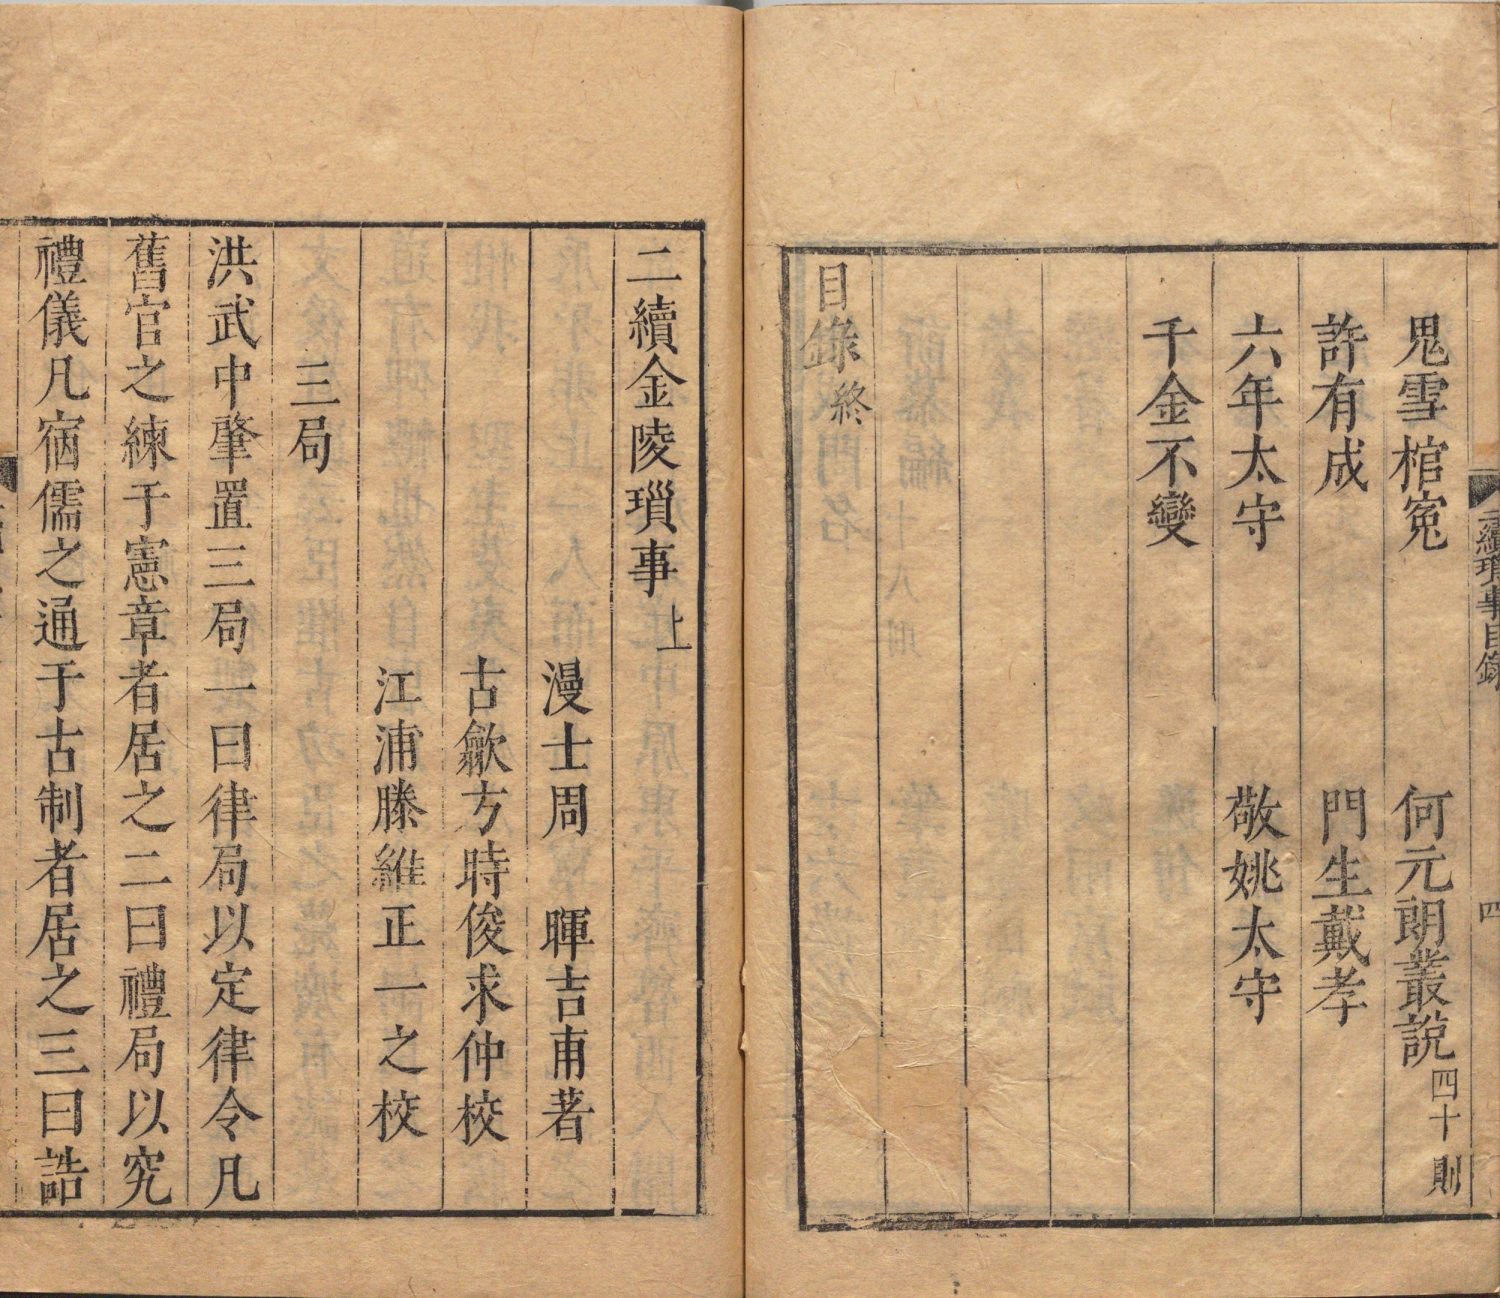 二續瑣事目錄
四
鬼雪棺寃　何元朗叢說四十則
許有成　門生戴孝
六年太守　敬姚太守
千金不變
目錄終
二續金陵瑣事上
漫士周　暉吉甫著
古歙方時俊求仲校
江浦滕維正一之校
三局
洪武中肇置三局一曰律局以定律令凡
舊官之練于憲章者居之二曰禮局以究
禮儀凡宿儒之通于古制者居之三曰誥